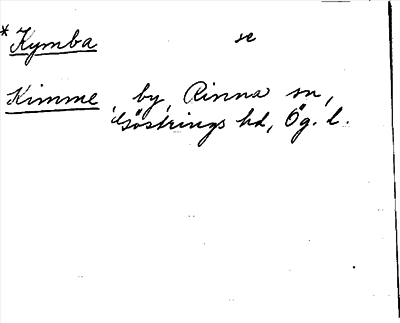 *Kymba se
Kimme, by, Rinna sn,
Göstrings hd, Ög. l.